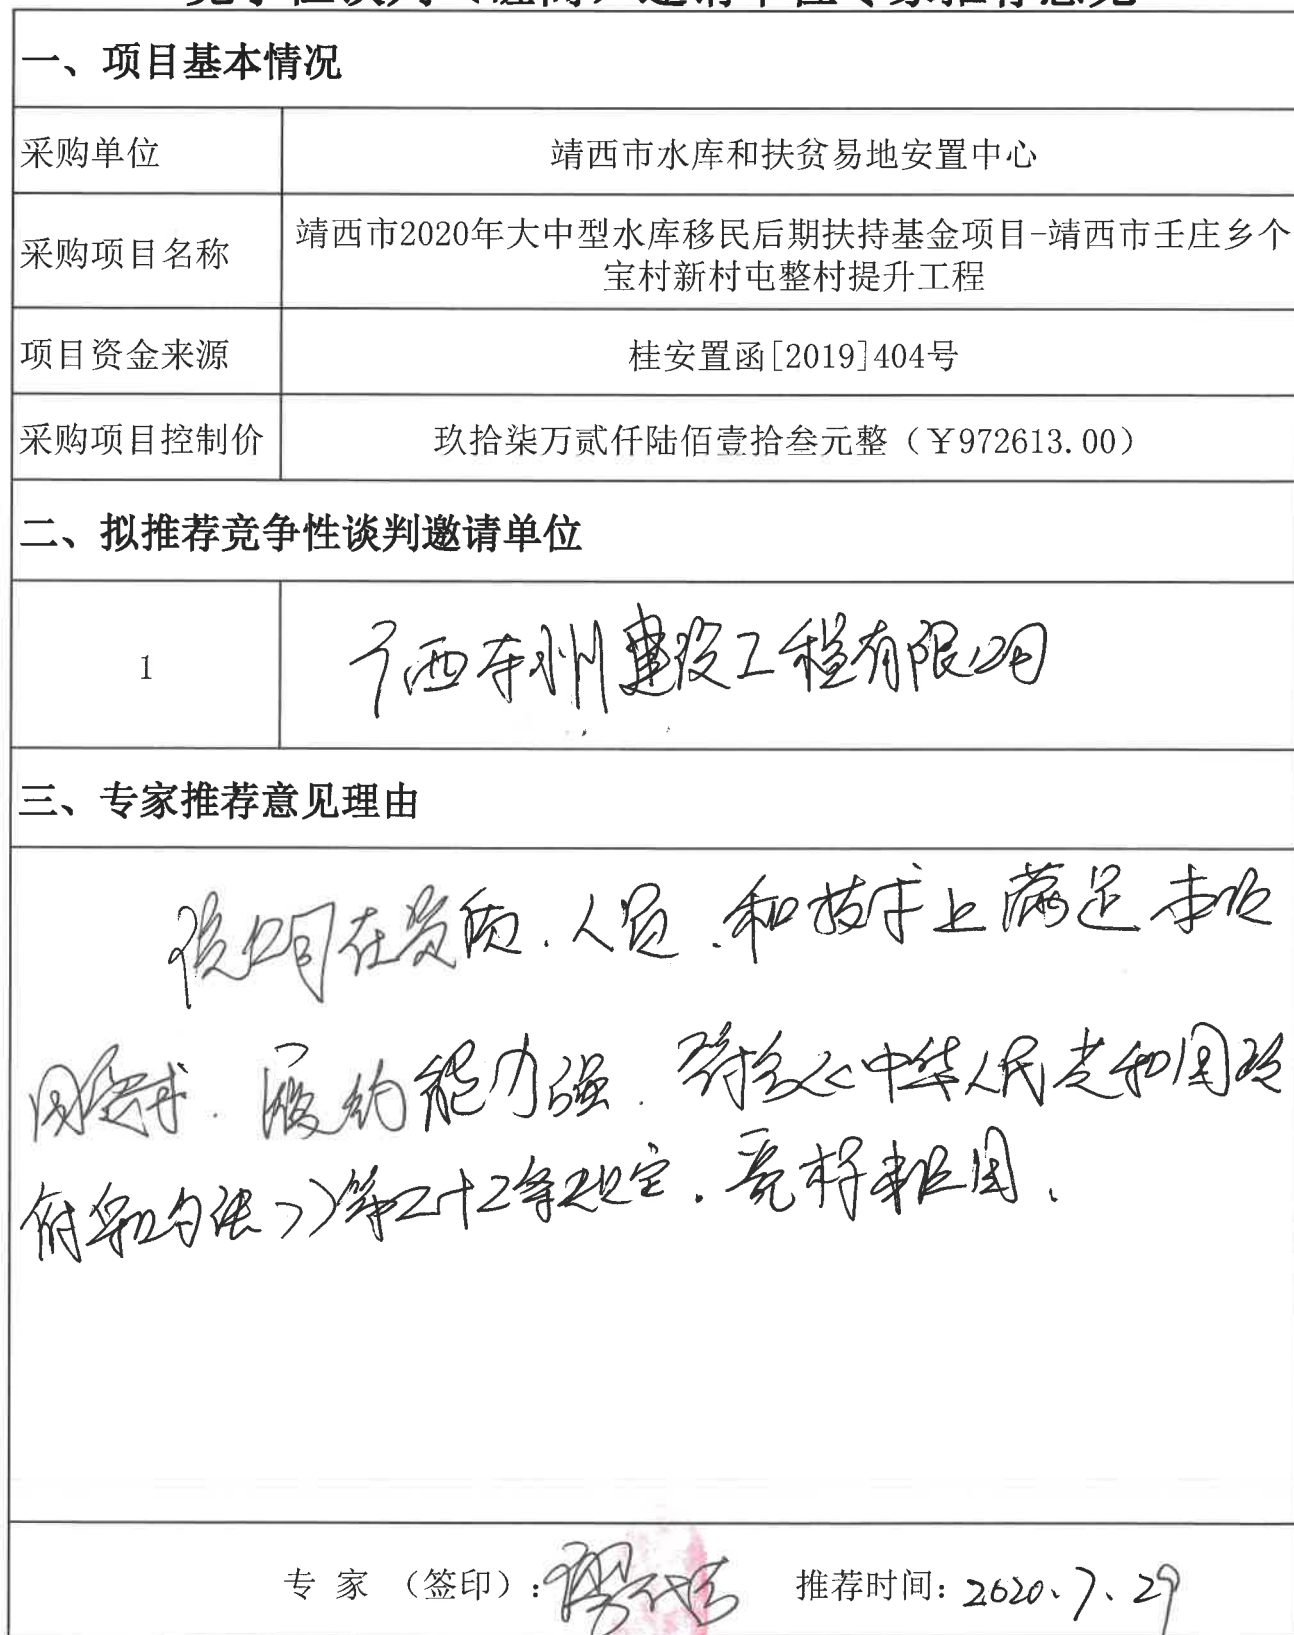 竞争性谈判（磋商）邀请单位专家推荐意见
一、项目基本情况
采购单位
靖西市水库和扶贫易地安置中心
采购项目名称
靖西市2020年大中型水库移民后期扶持基金项目-靖西市壬庄乡个
宝村新村屯整村提升工程
项目资金来源
桂安置函[2019]404号
采购项目控制价
玖拾柒万贰仟陆佰壹拾叁元整（￥972613.00）
二、拟推荐竞争性谈判邀请单位
1
广西 州建设工程有限公司
三、专家推荐意见理由
该公司在资质、人员、和技术上满足本次
需求、履约能力强、符合《中华人民共和国政
府采购法》第二十二条规定、
专 家 （签印）：
推荐时间：2020、7、29